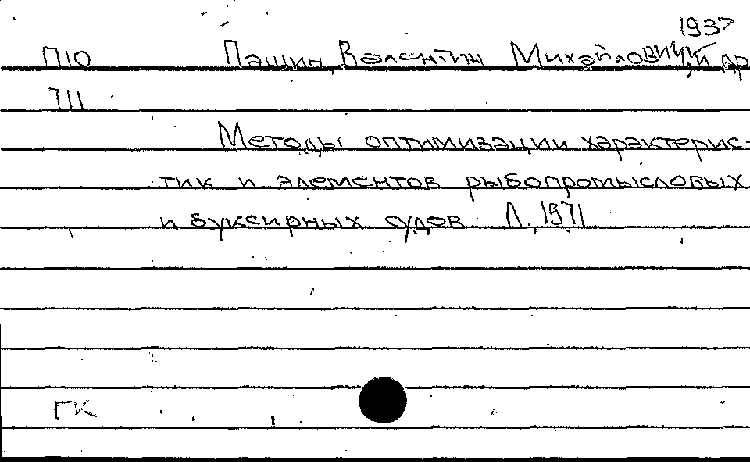 1937
П10 Пашин, Валентин Михайлович и др
711
Методы оптимизации характерис-
тик и элементов рыбопромысловых
и буксирных судов Л. 1971
ГК